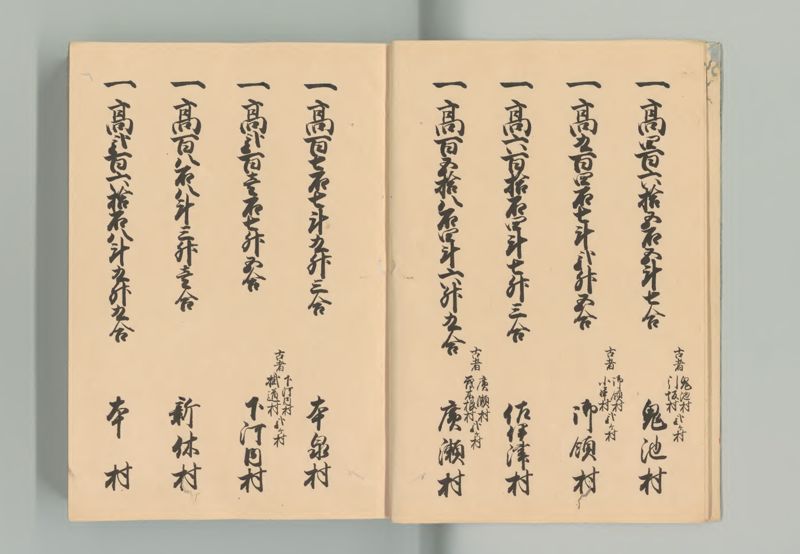 一高四百六拾五石五斗七合
古者 鬼池村 引坂村 弐ヶ村
鬼池村
一高九百四石七斗弐升五合
古者 御領村 弐ヶ村
御領村
一高六百拾石四斗七升三合
佐伊津村
一高百五拾八石四斗六升九合
古者 廣瀬村 茂木根村 弐ヶ村
廣瀬村
一高百七石七斗九升三合
本泉村
一高弐百壱石七升五合
古者 下河内村 弐ヶ村
下河内村
一高百八石八斗三升壱合
新休村
一高弐百六拾石八斗九升九合
本村